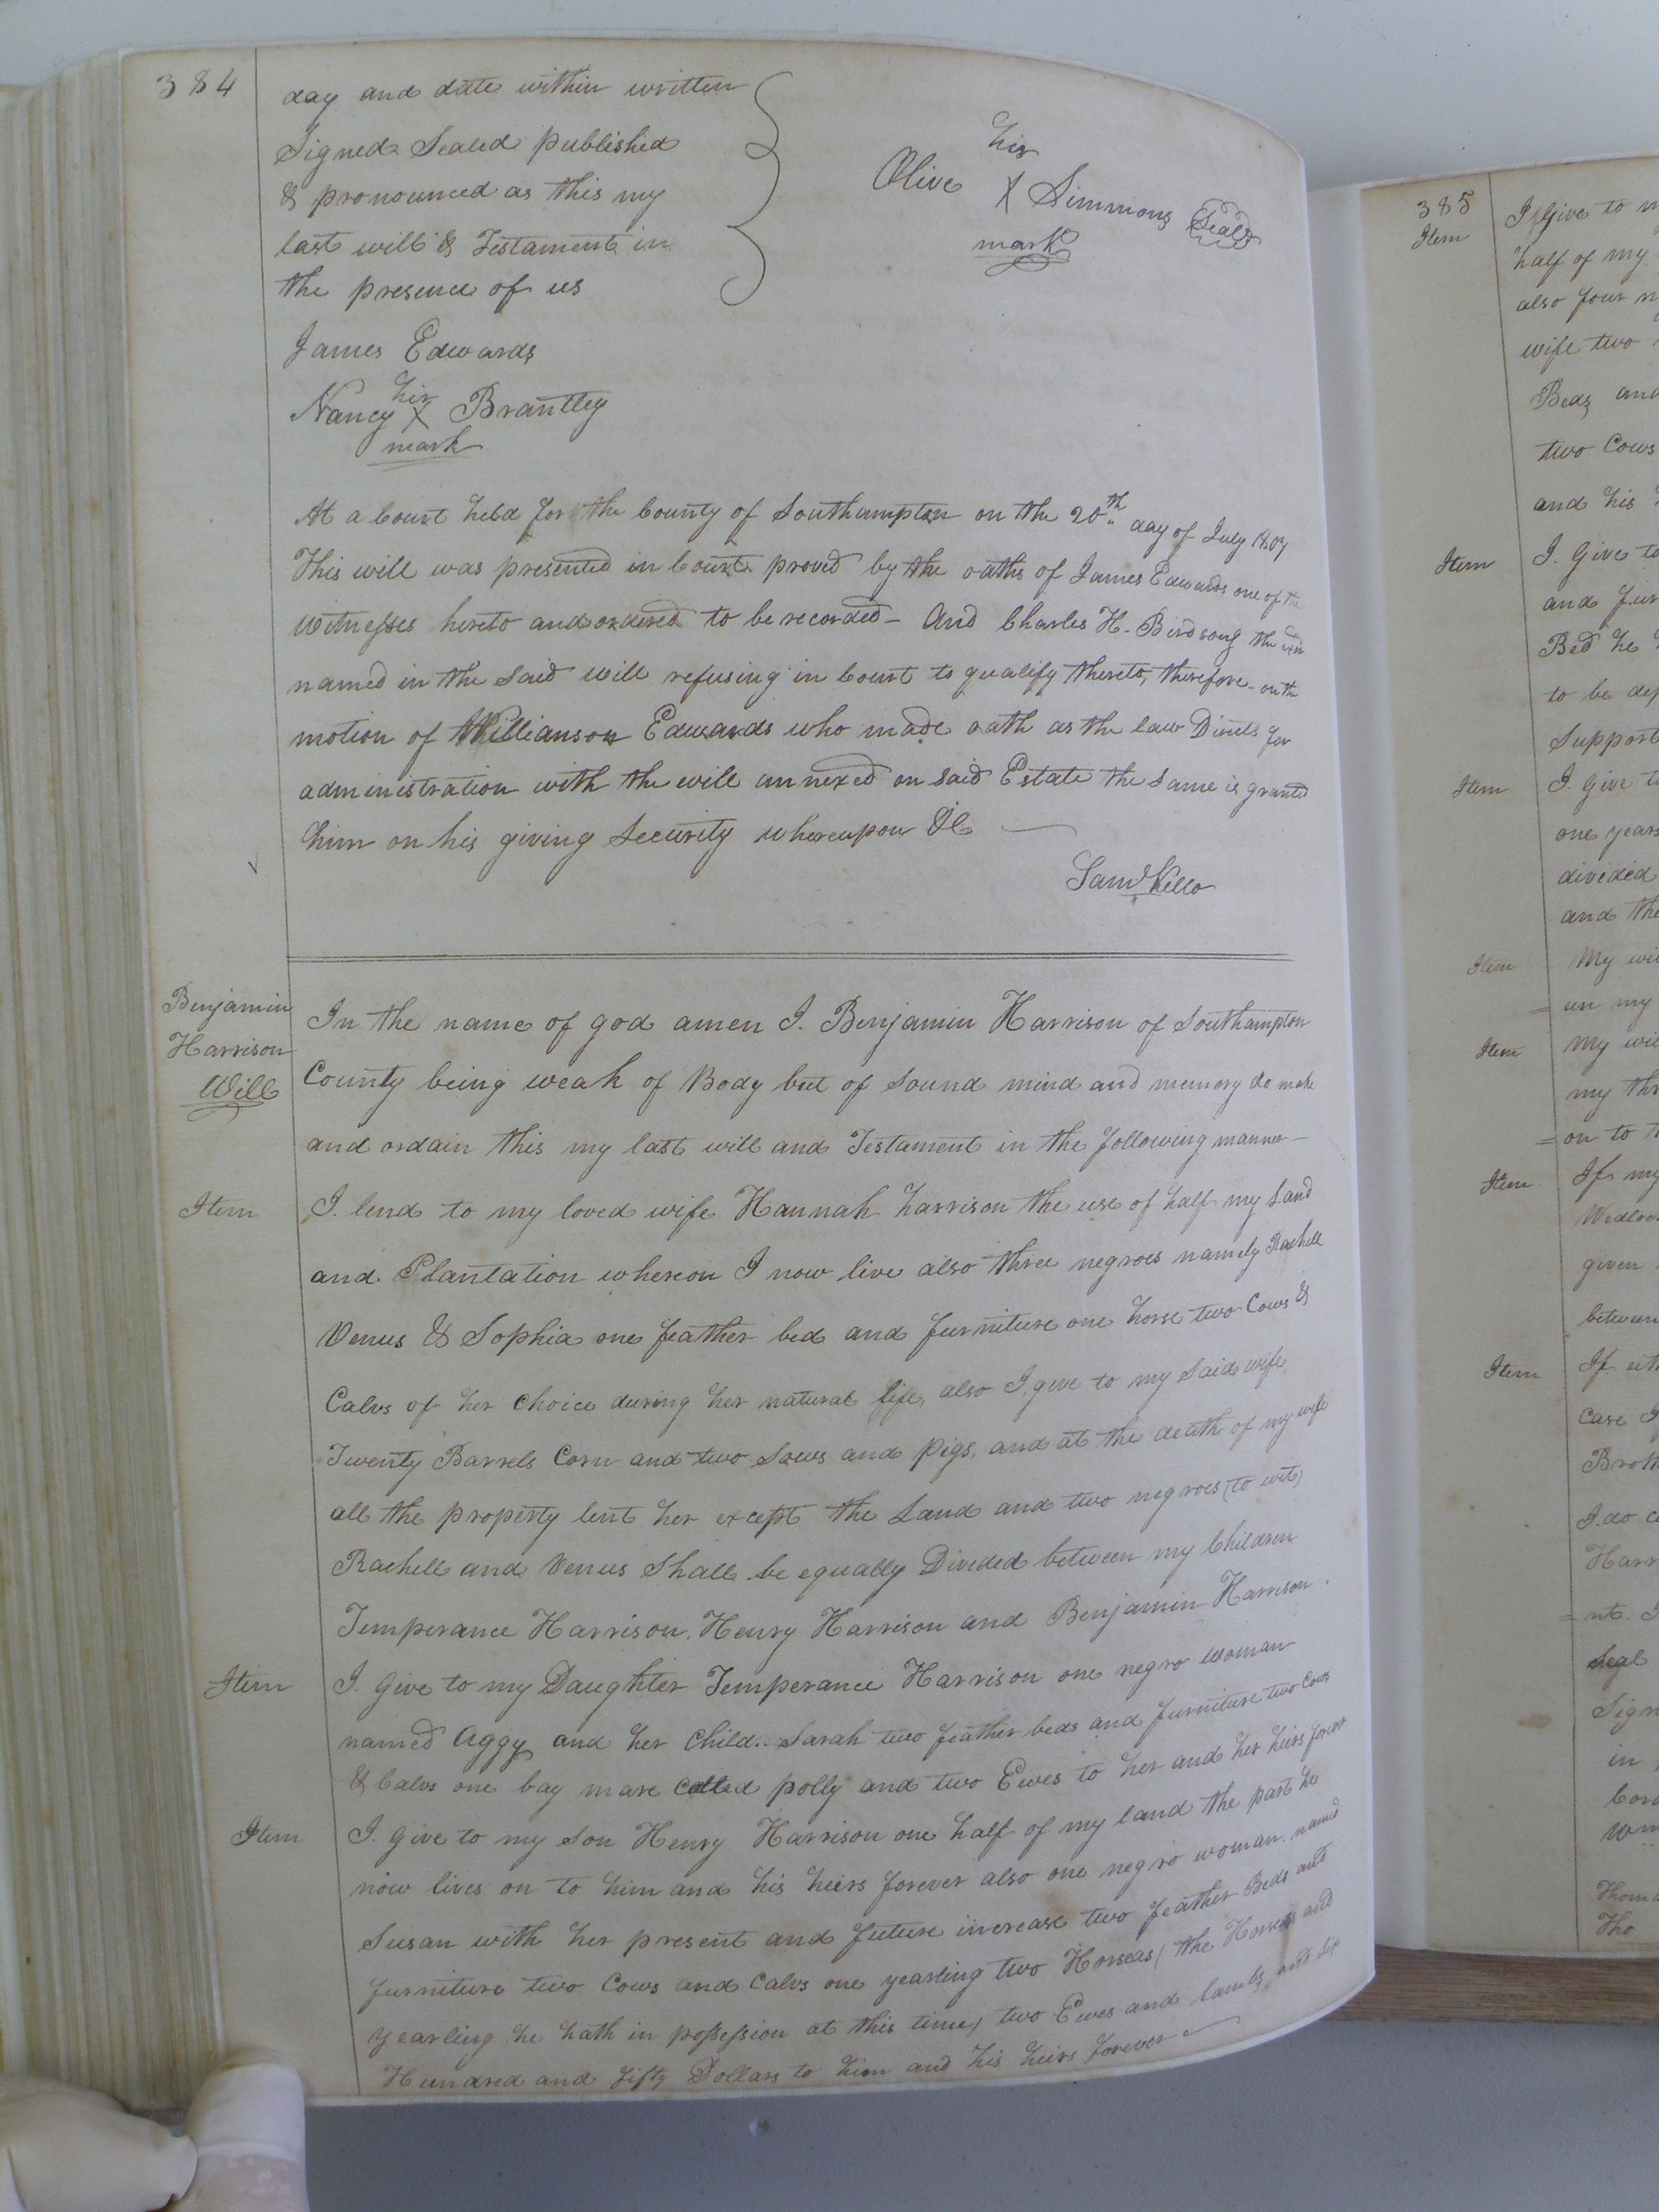 384
day and date within written
Signed Sealed published
& pronounced as this my
last will & Testament in
the presence of us
his
Olive X Simmons Seal
mark
James Edwards
his
Nancy X Brantley
mark
At a Court held for the County of Southampton on the 20th day of July 1807
This will was presented in Court proved by the oaths of James Edwards one of the
witnesses hereto and ordered to be recorded - And Charles H. Birdsong the exr
named in the said will refusing in Court to qualify thereto, therefore on the
motion of Williamson Edwards who made oath as the law Directs for
administration with the will annexed on said Estate the same is granted
him on his giving Security whereupon &c
Saml Kello
Benjamin
Harrison
Will
In the name of god amen I. Benjamin Harrison of Southampton
County being weak of Body but of Sound mind and memory do make
and ordain this my last will and Testament in the following manner -
Item I. lend to my loved wife Hannah harrison the use of half my Land
and Plantation whereon I now live also three negroes namely Rachell
Venus & Sophia one feather bed and furniture one horse two Cows &
Calvs of her choice during her natural life, also I give to my Said wife
Twenty Barrels Corn and two Sows and Pigs, and at the death of my wife
all the property lent her except the Land and two negroes (to wit)
Rachell and Venus Shall be equally Divided between my Children
Temperance Harrison, Henry Harrison and Benjamin Harrison.
Item I. Give to my Daughter Temperance Harrison one negro woman
named Aggy and her Child.. Sarah two feather beds and furniture two Cows
& Calvs one bay mare Called polly and two Ewes to her and her heirs forever
Item I. give to my Son Henry Harrison one half of my land the part he
now lives on to him and his heirs forever also one negro woman named
Susan with her present and future increase two feather Beds and
furniture two Cows and Calvs one yearling two Horseas (the Horses and
yearling he hath in possession at this time) two Ewes and lambs, and six
Hundred and fifty Dollars to him and his heirs forever
385
Item I Give to
half of my
also four
wife two
Beds and
two Cows
and his
Item I. Give to
and fur
Bed he
to be
Support
Item I. give to
one years
divided
and the
Item My
= on my
Item My
my
= on to
Item If my
Wedloc
given
between
Item If
Case
Broth
I. do
Harr
= nt.
seal
Sign
in
Thom
Tho